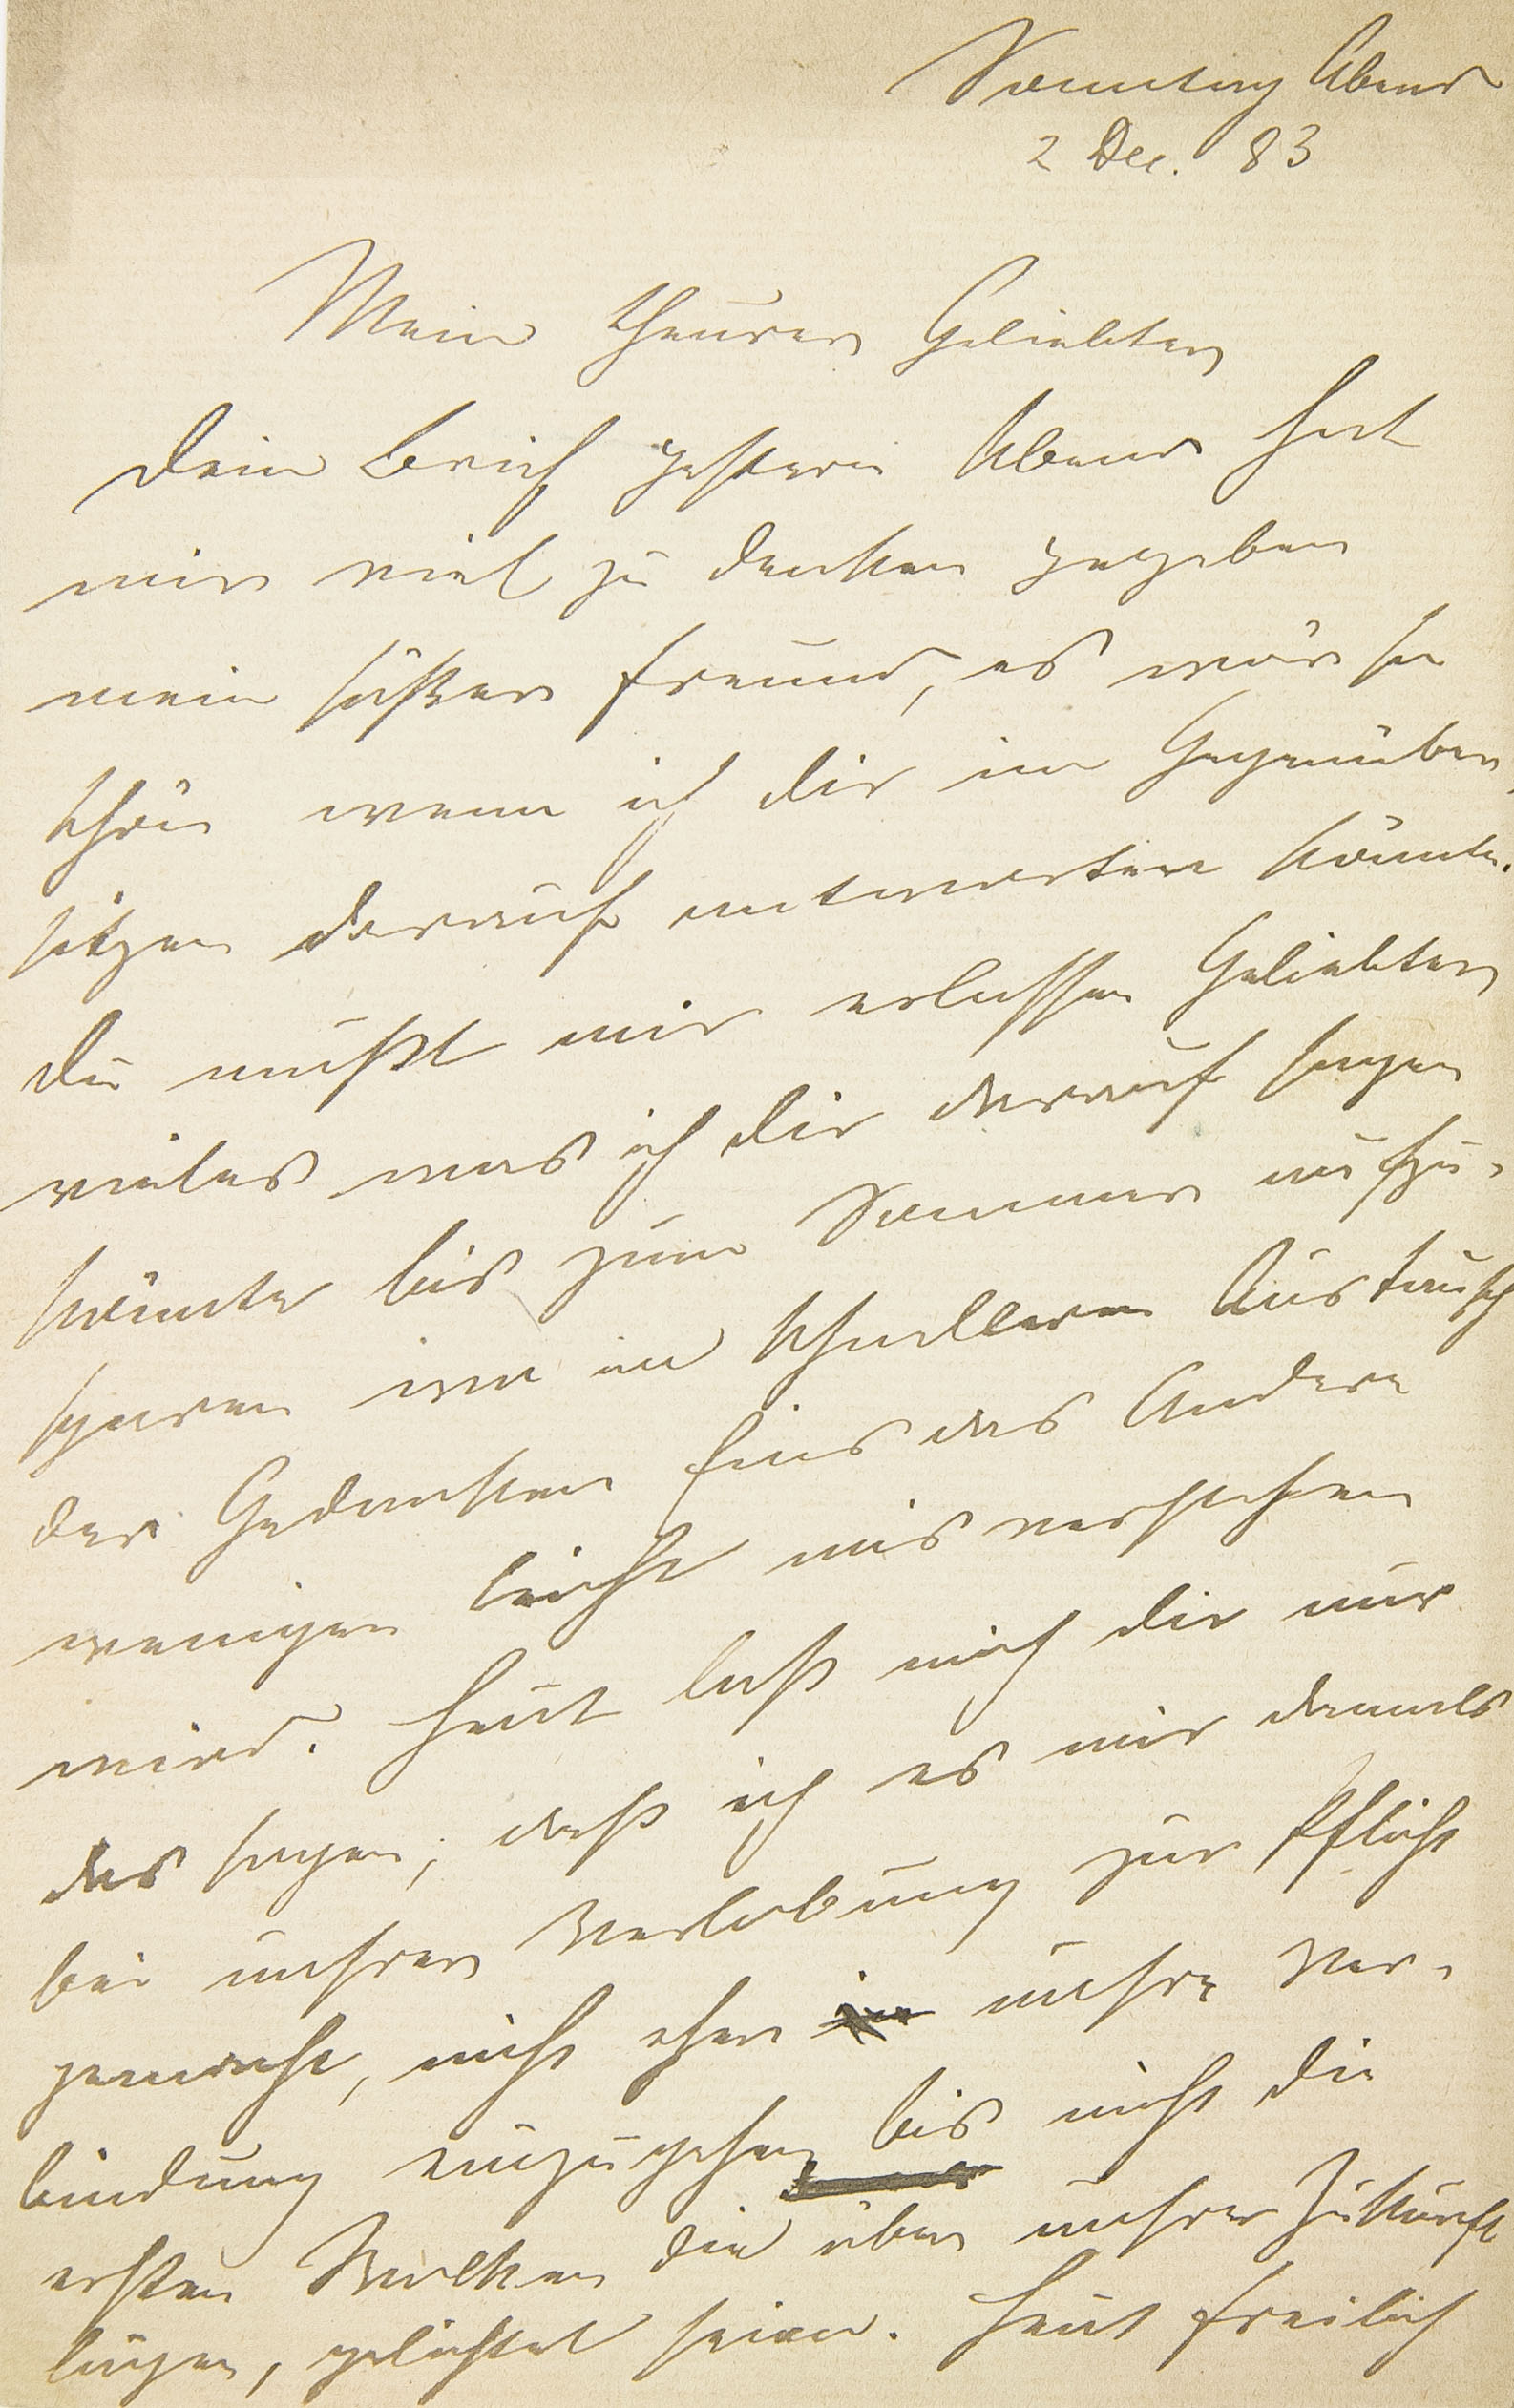 Sonntag Abend
2 Dec. 83
Mein theurer Geliebter
Dein Brief gestern Abend hat
mir viel zu denken gegeben
mein süßer Freund, es wär so
schön wenn ich Dir im Gegenüber
sitzen darauf antworten könnte.
Du mußt mir erlassen Geliebter
vieles was ich Dir darauf sagen
könnte bis zum Sommer aufzu-
sparen wo im schnelleren Austausch
der Gedanken Eins das Andere
weniger leicht misverstehen
wird. Heut laß mich Dir nur
das sagen, daß ich es mir damals
bei unsrer Verlobung zur Pflicht
gemacht, nicht eher unsre Ver-
bindung einzugehen bis nicht die
ersten Wolken die über unsrer Zukunft
liegen, gelichtet seien. Heut freilich